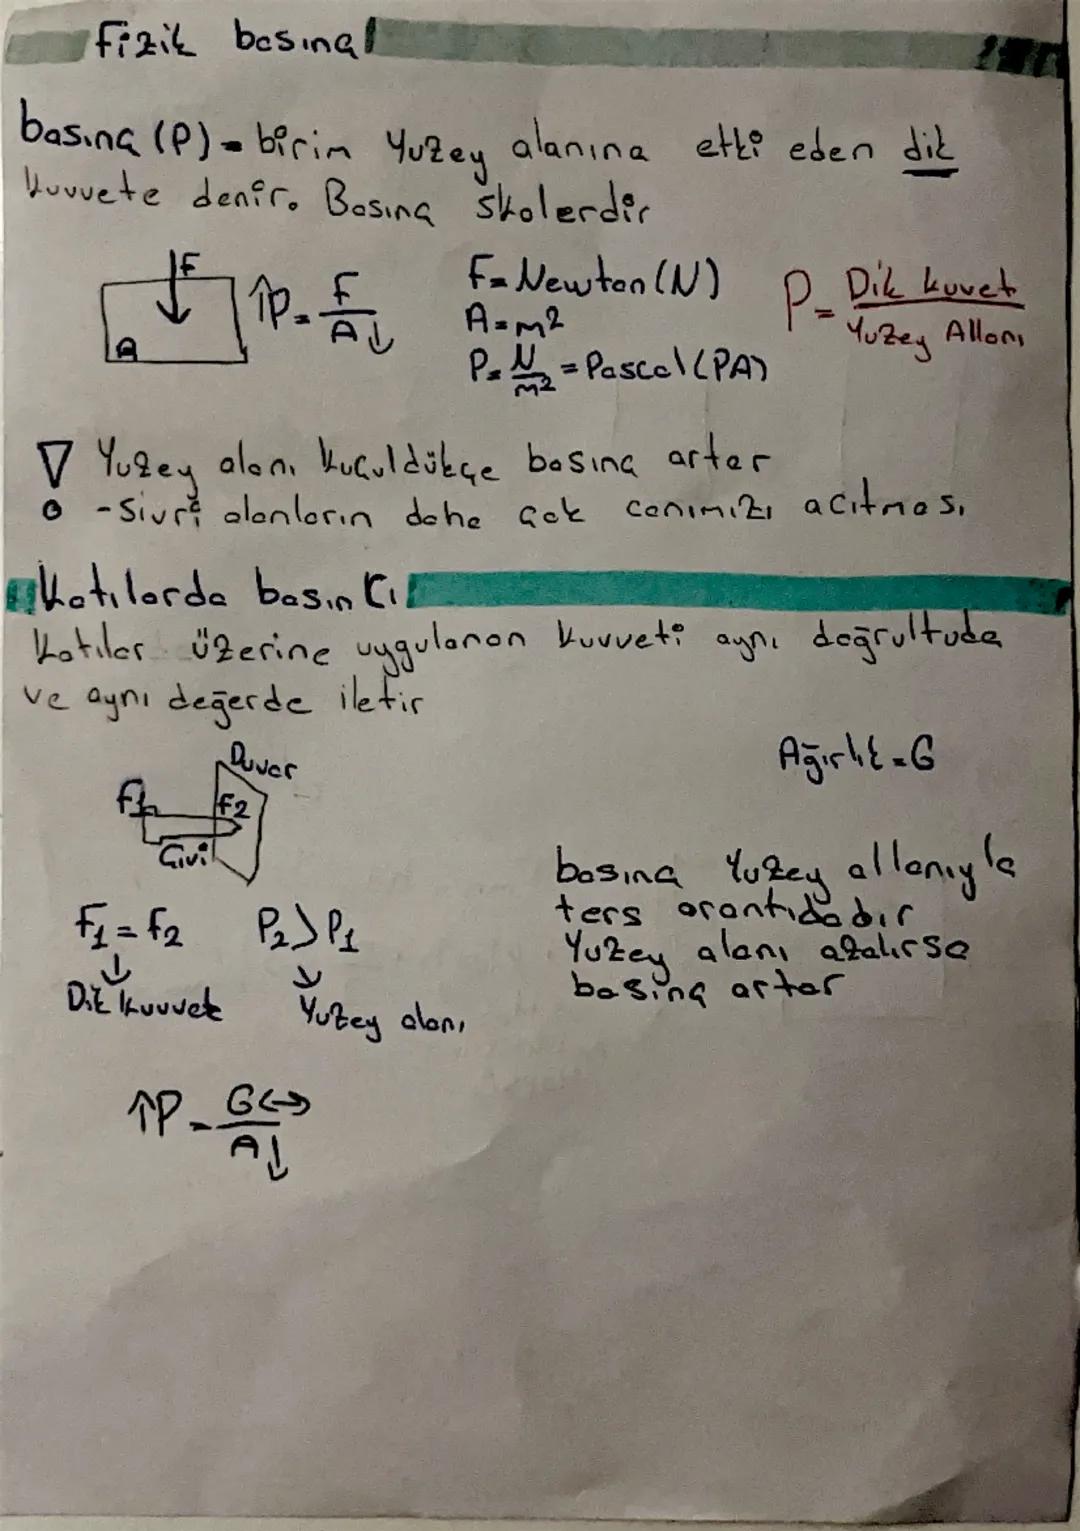 Fizik basınç
basınç (P) = birim Yuzey alanına etki eden dik
kuvvete denir. Basınç skolerdir
F
A
↑P = F / A↓
F = Newton (N)
A = m²
P = N / m² = Pascal (PA)
P = Dik kuvet / Yuzey Allanı
Yuzey alanı kuçuldükçe basınç artar
- Sivri alanların daha çok canımızı acıtması
Katılarda basıncı
Katılar üzerine uygulanan kuvveti aynı doğrultuda
ve aynı değerde iletir
Duvar
F1
F2
Çivi
Ağırlık = G
F1 = F2 P2 > P1
↓ ↓
Dik kuvvet Yuzey alanı
basınç Yuzey allanıyla
ters orantıdadır
Yuzey alanı azalırsa
basınç artar
↑P = G↔ / A↓